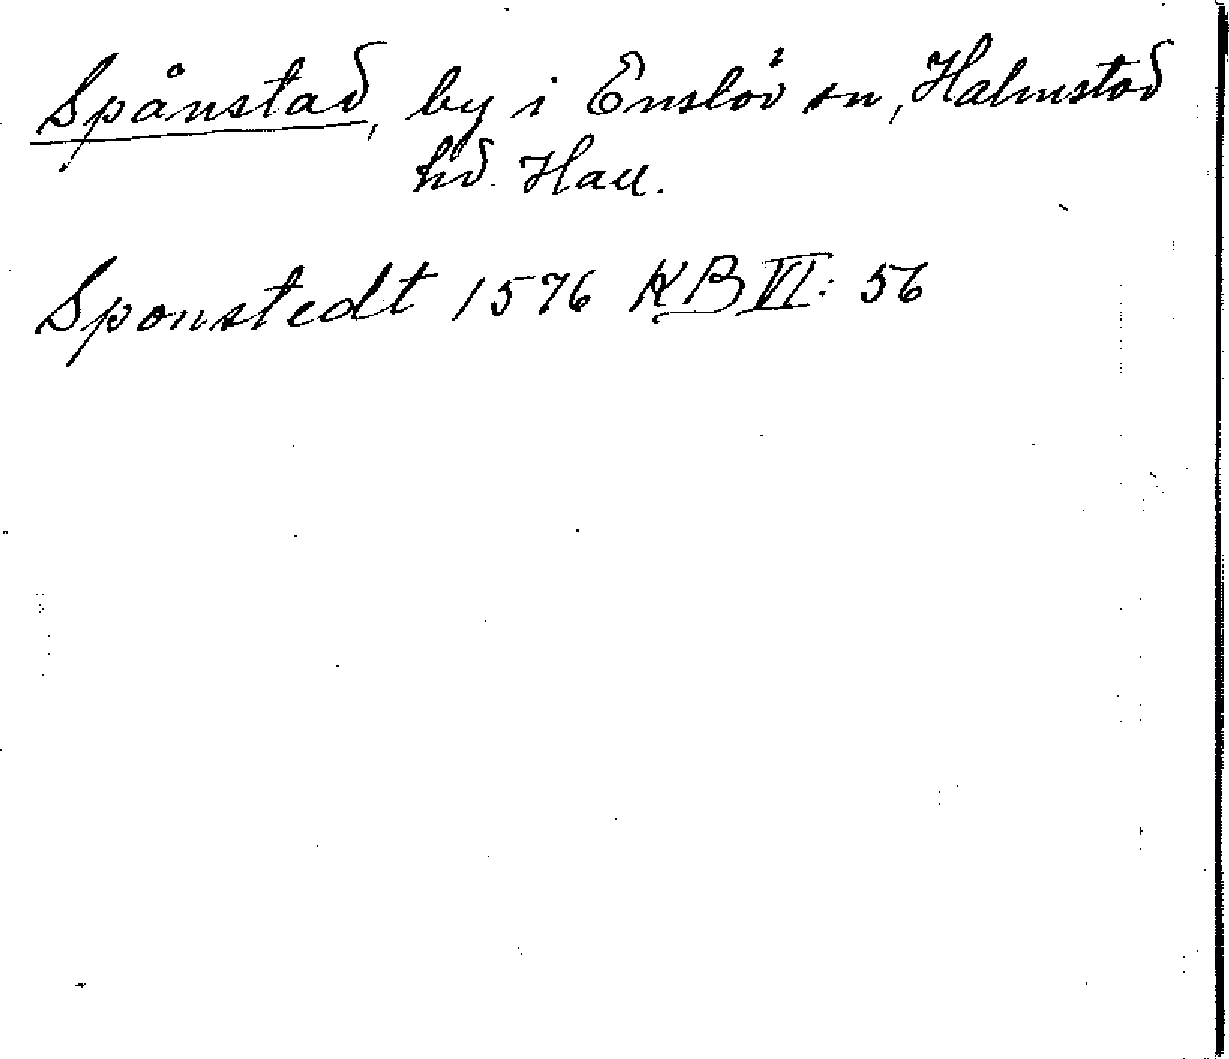 Spånstad, by i Enslöv sn, Halmstad
hd. Hall.
Sponstedt 1576 KB VI: 56